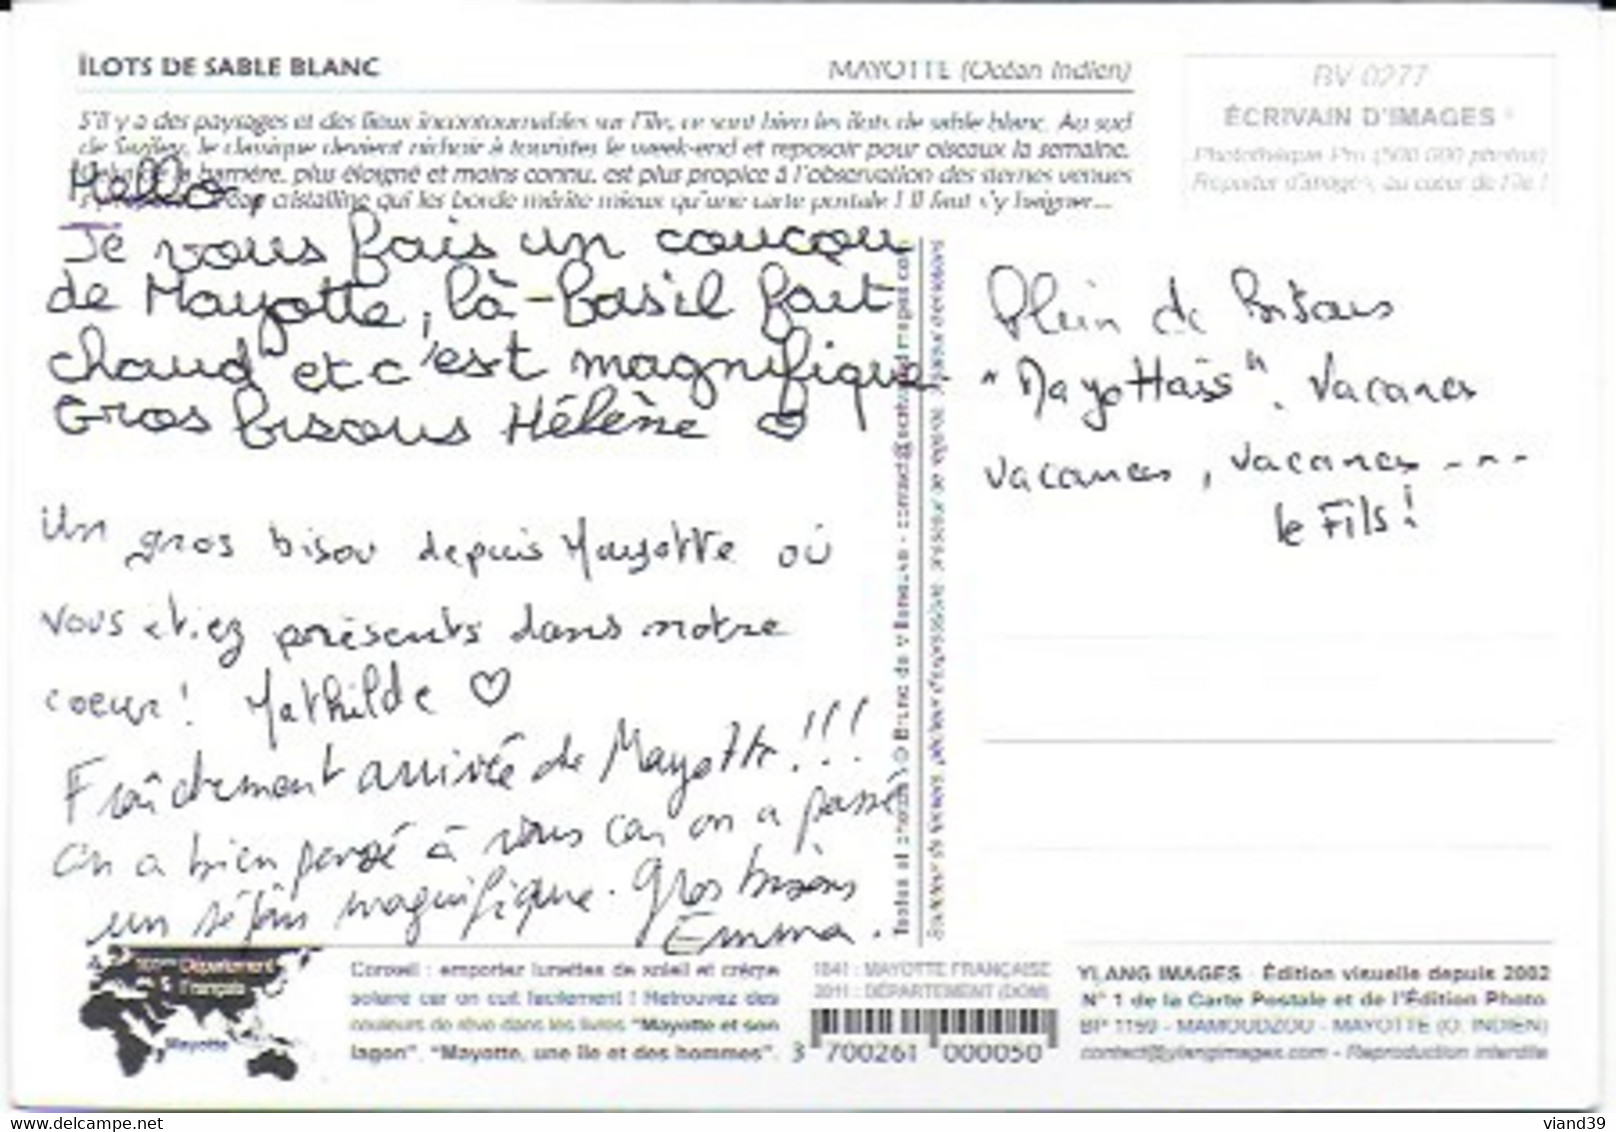 ÎLOTS DE SABLE BLANC
MAYOTTE (Océan Indien)
S'il y a des paysages et des lieux incontournables sur l'île, ce sont bien les îlots de sable blanc. Au sud
de Saziley, le classique devient nichoir à touristes le week-end et reposoir pour oiseaux la semaine.
la barrière, plus éloigné et moins connu, est plus propice à l'observation des sternes venues
cristalline qui les borde mérite mieux qu'une carte postale ! Il faut s'y baigner...
BV 0277
ÉCRIVAIN D'IMAGES
Photothèque Pro (500 000 photos)
Reporter d'images, au cœur de l'île !
Hello,
Je vous fais un coucou
de Mayotte, là-bas il fait
chaud et c'est magnifique
Gros bisous Hélène ♡
Un gros bisou depuis Mayotte où
vous étiez présents dans notre
coeur! Mathilde ♡
Fraîchement arrivée de Mayotte!!!
On a bien pensé à vous car on a passé
un séjour magnifique. Gros bisous
Emma.
Plein de bisous
"Mayottais". Vacances
vacances, vacances ----
le Fils!
Textes et photos © Bruno de Villeneuve - contact@
Département
Français
Mayotte
Conseil : emporter lunettes de soleil et crème
solaire car on cuit facilement ! Retrouvez des
couleurs de rêve dans les livres "Mayotte et son
lagon". "Mayotte, une île et des hommes".
1841 : MAYOTTE FRANÇAISE
2011 : DÉPARTEMENT (DOM)
3 700261 000050
YLANG IMAGES - Édition visuelle depuis 2002
N° 1 de la Carte Postale et de l'Édition Photo
BP 1159 - MAMOUDZOU - MAYOTTE (O. INDIEN)
contact@ylangimages.com - Reproduction interdite
www.delcampe.net
viand39